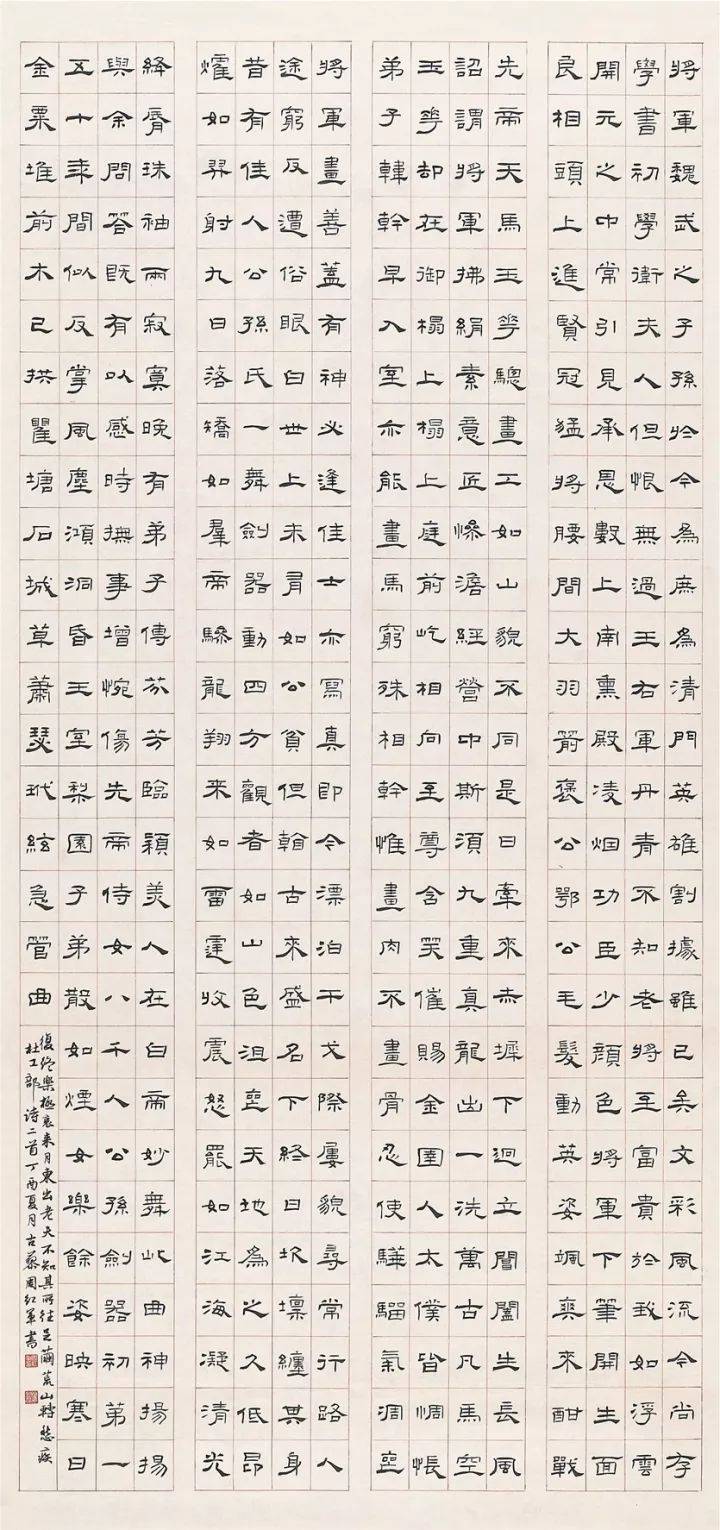 將軍魏武之子孫於今為庶為清門英雄割據雖已矣文彩風流今尚存
學書初學衛夫人但恨無過王右軍丹青不知老將至富貴於我如浮雲
開元之中常引見承恩數上南熏殿凌烟功臣少顏色將軍下筆開生面
良相頭上進賢冠猛將腰間大羽箭褒公鄂公毛髮動英姿颯爽來酣戰
先帝天馬玉華驄畫工如山貌不同是日牽來赤墀下迥立閶闔生長風
詔謂將軍拂絹素意匠慘澹經營中斯須九重真龍出一洗萬古凡馬空
玉華却在御榻上榻上庭前屹相向至尊含笑催賜金圉人太僕皆惆悵
弟子韓幹早入室亦能畫馬窮殊相幹惟畫肉不畫骨忍使驊騮氣凋喪
將軍畫善蓋有神必逢佳士亦寫真即今漂泊干戈際屢貌尋常行路人
途窮反遭俗眼白世上未有如公貧但翰古來盛名下終日坎壈纏其身
昔有佳人公孫氏一舞劍器動四方觀者如山色沮喪天地為之久低昂
燿如羿射九日落矯如羣帝驂龍翔來如雷霆收震怒罷如江海凝清光
絳脣珠袖兩寂寞晚有弟子傳芬芳臨潁美人在白帝妙舞此曲神揚揚
與余問答既有以感時撫事增惋傷先帝侍女八千人公孫劍器初第一
五十年間似反掌風塵澒洞昏王室梨園子弟散如煙女樂餘姿映寒日
金粟堆前木已拱瞿塘石城草蕭瑟玳絃急管曲
復終樂極哀來月東出老夫不知其所往足繭荒山轉愁疾
杜工部詩二首丁酉夏月古蔡周紅軍書